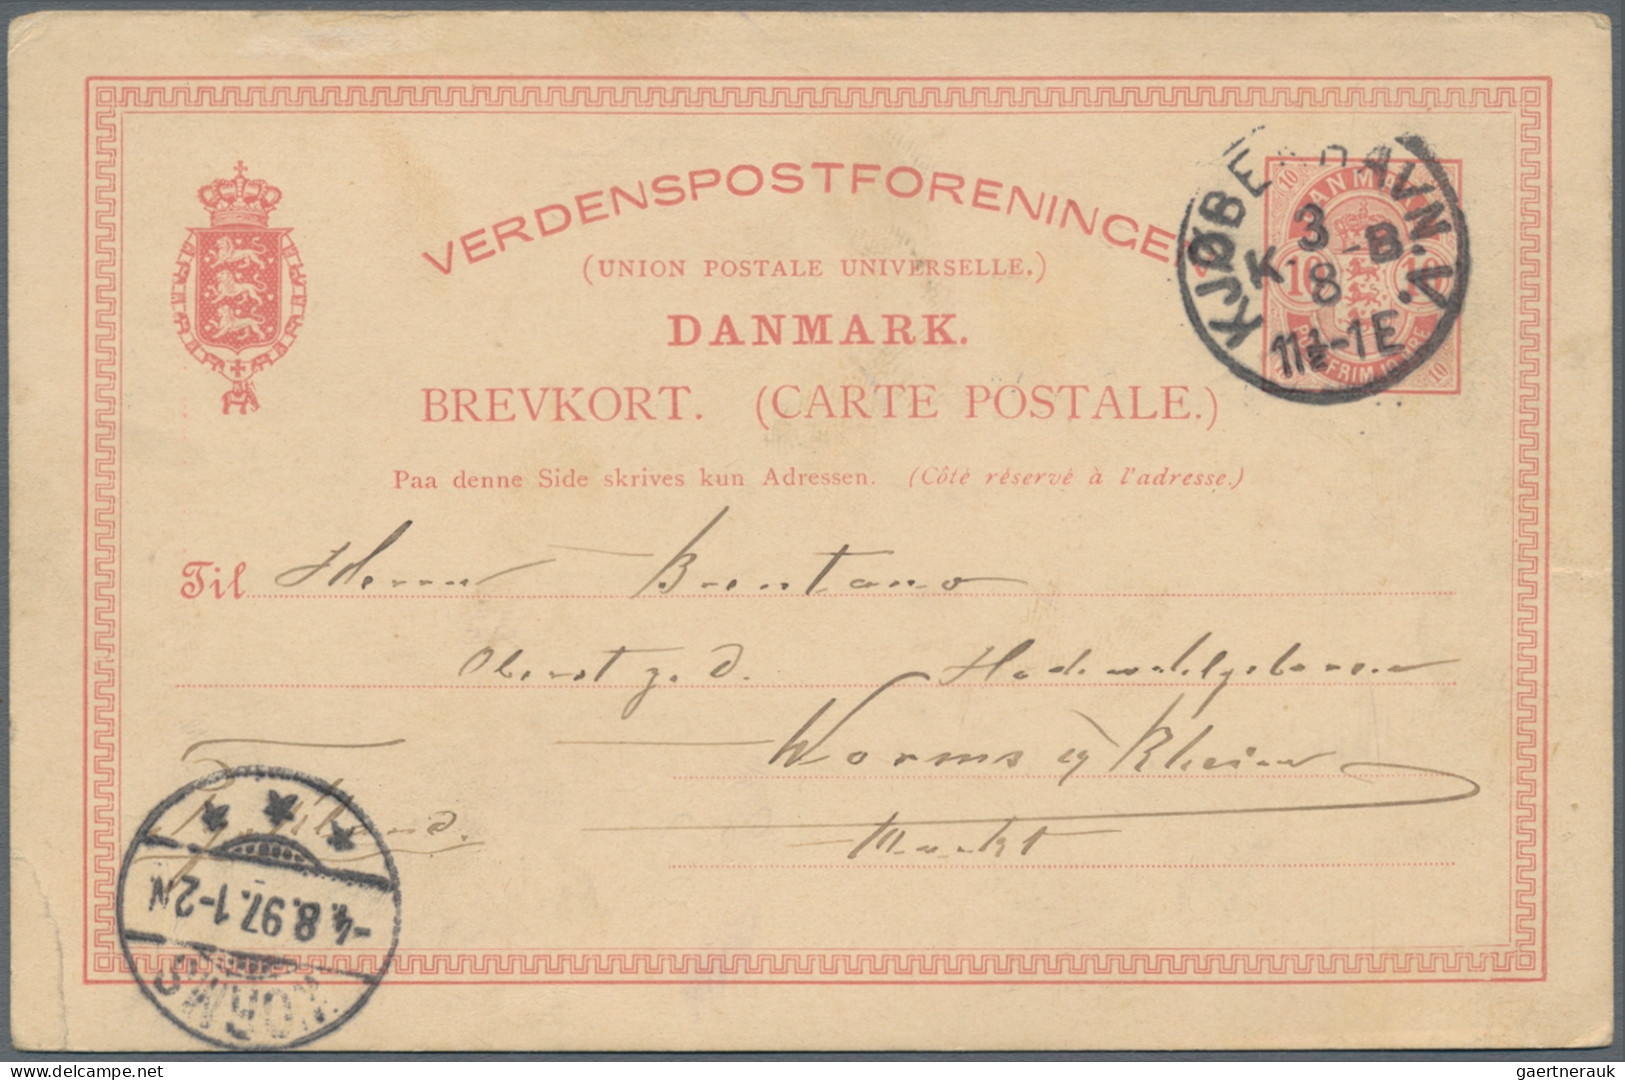 VERDENSPOSTFORENINGEN
(UNION POSTALE UNIVERSELLE.)
DANMARK.
BREVKORT. (CARTE POSTALE.)
Paa denne Side skrives kun Adressen. (Côté réservé à l'adresse.)
KJØBENHAVN V.
K. 3 B.
8
11½-1 E
10 DANMARK 10
10 10
POSTFRIM 10
Til Herrn Brentano
Oberst z. d. Hochwohlgeboren
Worms a/ Rhein
Markt
WORMS
-4.8.97.1-2N
gaertnerauk